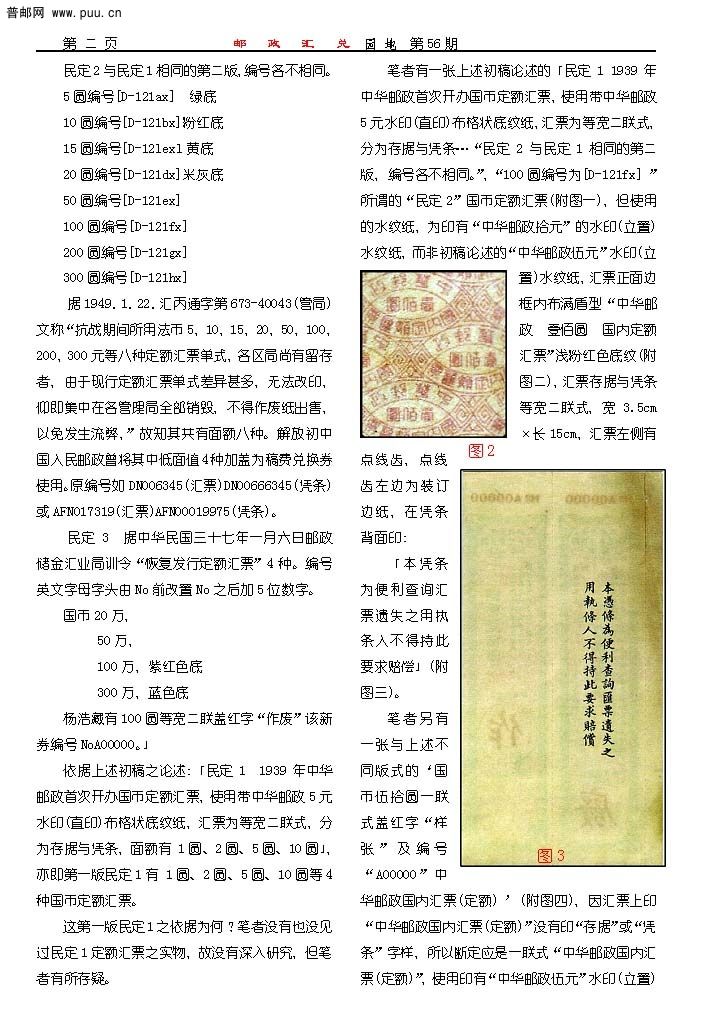 普邮网
www.puu.cn
第二页
邮政汇兑 园地 第56期
民定2与民定1相同的第二版,编号各不相同。
5圆编号[D-121ax] 绿底
10圆编号[D-121bx]粉红底
15圆编号[D-121ex1黄底
20圆编号[D-121dx]米灰底
50圆编号[D-121ex]
100圆编号[D-121fx]
200圆编号[D-121gx]
300圆编号[D-121hx]
据1949.1.22.汇丙通字第673-40043(管局)
文称“抗战期间所用法币5,10,15,20,50,100,
200,300元等八种定额汇票单式,各区局尚有留存
者,由于现行定额汇票单式差异甚多,无法改印,
仰即集中在各管理局全部销毁,不得作废纸出售,
以免发生流弊,”故知其共有面额八种。解放初中
国人民邮政曾将其中低面值4种加盖为稿费兑换券
使用。原编号如DN006345(汇票)DN00666345(凭条)
或AFN017319(汇票)AFN00019975(凭条)。
民定3 据中华民国三十七年一月六日邮政
储金汇业局训令“恢复发行定额汇票”4种。编号
英文字母字头由No前改置No之后加5位数字。
国币20万,
50万,
100万,紫红色底
300万,蓝色底
杨浩藏有100圆等宽二联盖红字“作废”该新
券编号NoA00000。」
依据上述初稿之论述:「民定1 1939年中华
邮政首次开办国币定额汇票,使用带中华邮政5元
水印(直印)布格状底纹纸,汇票为等宽二联式,分
为存据与凭条,面额有1圆、2圆、5圆、10圆」,
亦即第一版民定1有1圆、2圆、5圆、10圆等4
种国币定额汇票。
这第一版民定1之依据为何?笔者没有也没见
过民定1定额汇票之实物,故没有深入研究,但笔
者有所存疑。
笔者有一张上述初稿论述的「民定1 1939年
中华邮政首次开办国币定额汇票,使用带中华邮政
5元水印(直印)布格状底纹纸,汇票为等宽二联式,
分为存据与凭条…“民定2与民定1相同的第二
版,编号各不相同。”,“100圆编号为[D-121fx]”
所谓的“民定2”国币定额汇票(附图一),但使用
的水纹纸,为印有“中华邮政拾元”的水印(立置)
水纹纸,而非初稿论述的“中华邮政伍元”水印(立
置)水纹纸,汇票正面边
框内布满盾型“中华邮
政 壹佰圆 国内定额
汇票”浅粉红色底纹(附
图二),汇票存据与凭条
等宽二联式,宽3.5cm
×长15cm,汇票左侧有
图2
点线齿,点线
齿左边为装订
边纸,在凭条
背面印:
「本凭条
为便利查询汇
票遗失之用执
条人不得持此
要求赔偿」(附
图三)。
笔者另有
一张与上述不
同版式的‘国
币伍拾圆一联
式盖红字“样
张”及编号
“A00000”中
本憑條為便利查詢匯票遺失之
用執條人不得持此要求賠償
图3
华邮政国内汇票(定额)’(附图四),因汇票上印
“中华邮政国内汇票(定额)”没有印“存据”或“凭
条”字样,所以断定应是一联式“中华邮政国内汇
票(定额)”,使用印有“中华邮政伍元”水印(立置)